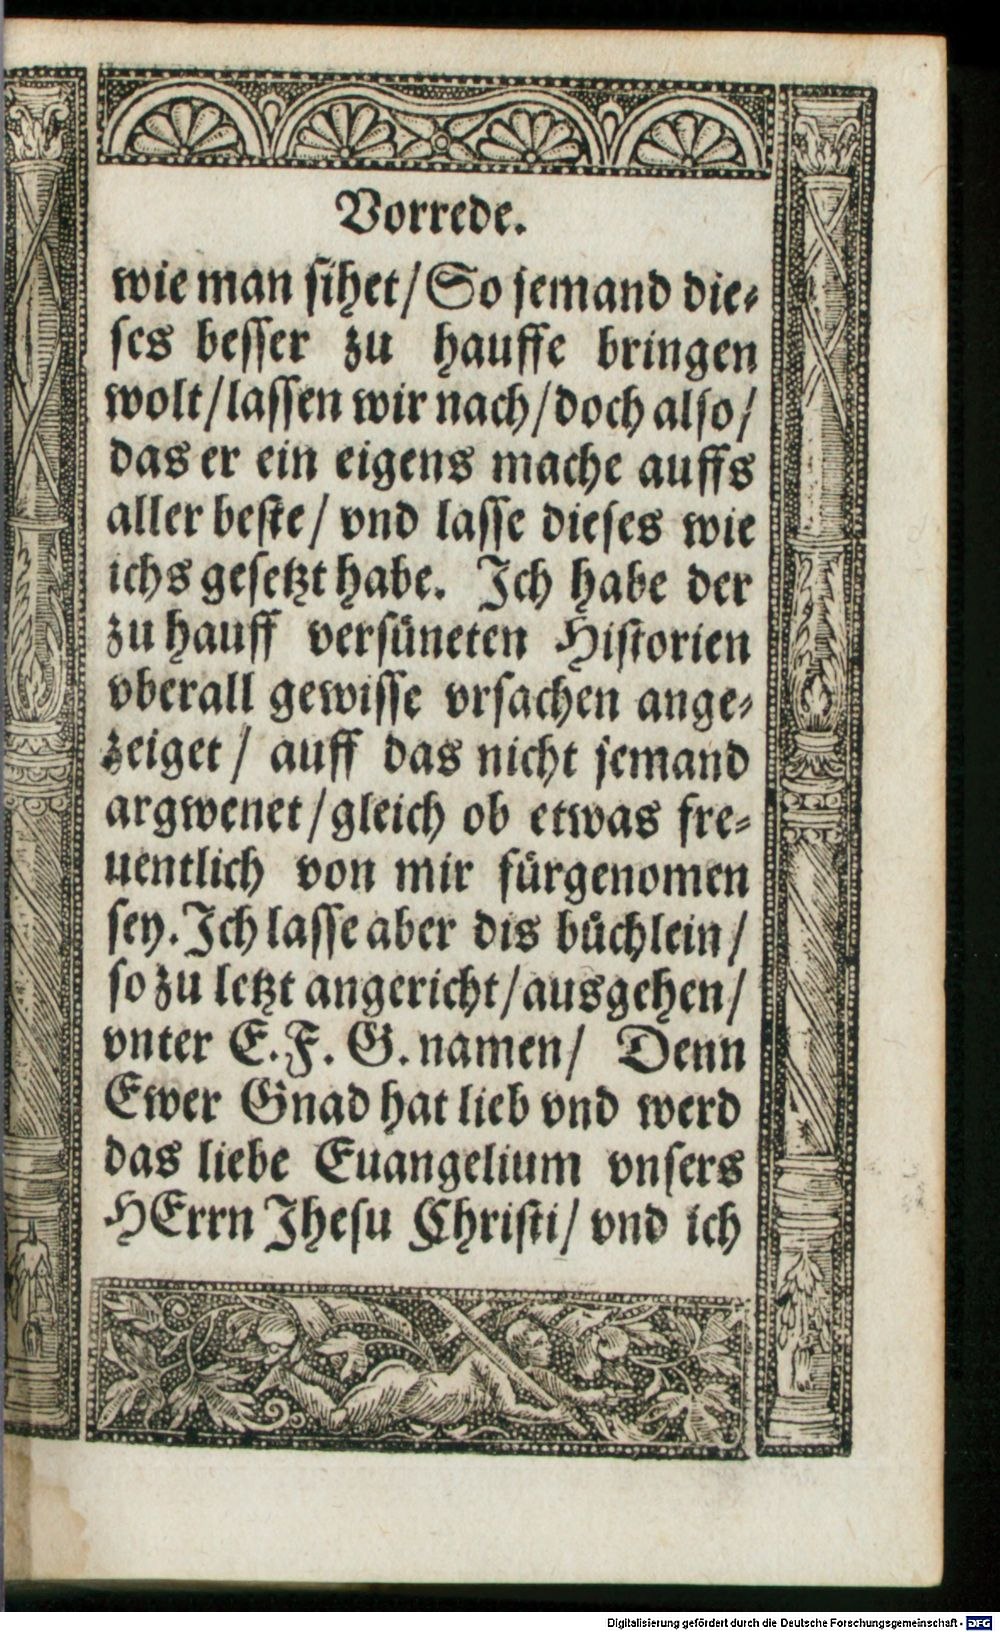 Vorrede.
wie man sihet/ So jemand die⸗
ses besser zu hauffe bringen
wolt/ lassen wir nach/ doch also/
das er ein eigens mache auffs
aller beste/ vnd lasse dieses wie
ichs gesetzt habe. Ich habe der
zu hauff versüneten Historien
vberall gewisse vrsachen ange⸗
zeiget/ auff das nicht jemand
argwenet/ gleich ob etwas fre⸗
uentlich von mir fürgenomen
sey. Ich lasse aber dis büchlein/
so zu letzt angericht/ ausgehen/
vnter E. F. G. namen/ Denn
Ewer Gnad hat lieb vnd werd
das liebe Euangelium vnsers
HErrn Jhesu Christi/ vnd ich
Digitalisierung gefördert durch die Deutsche Forschungsgemeinschaft - DFG